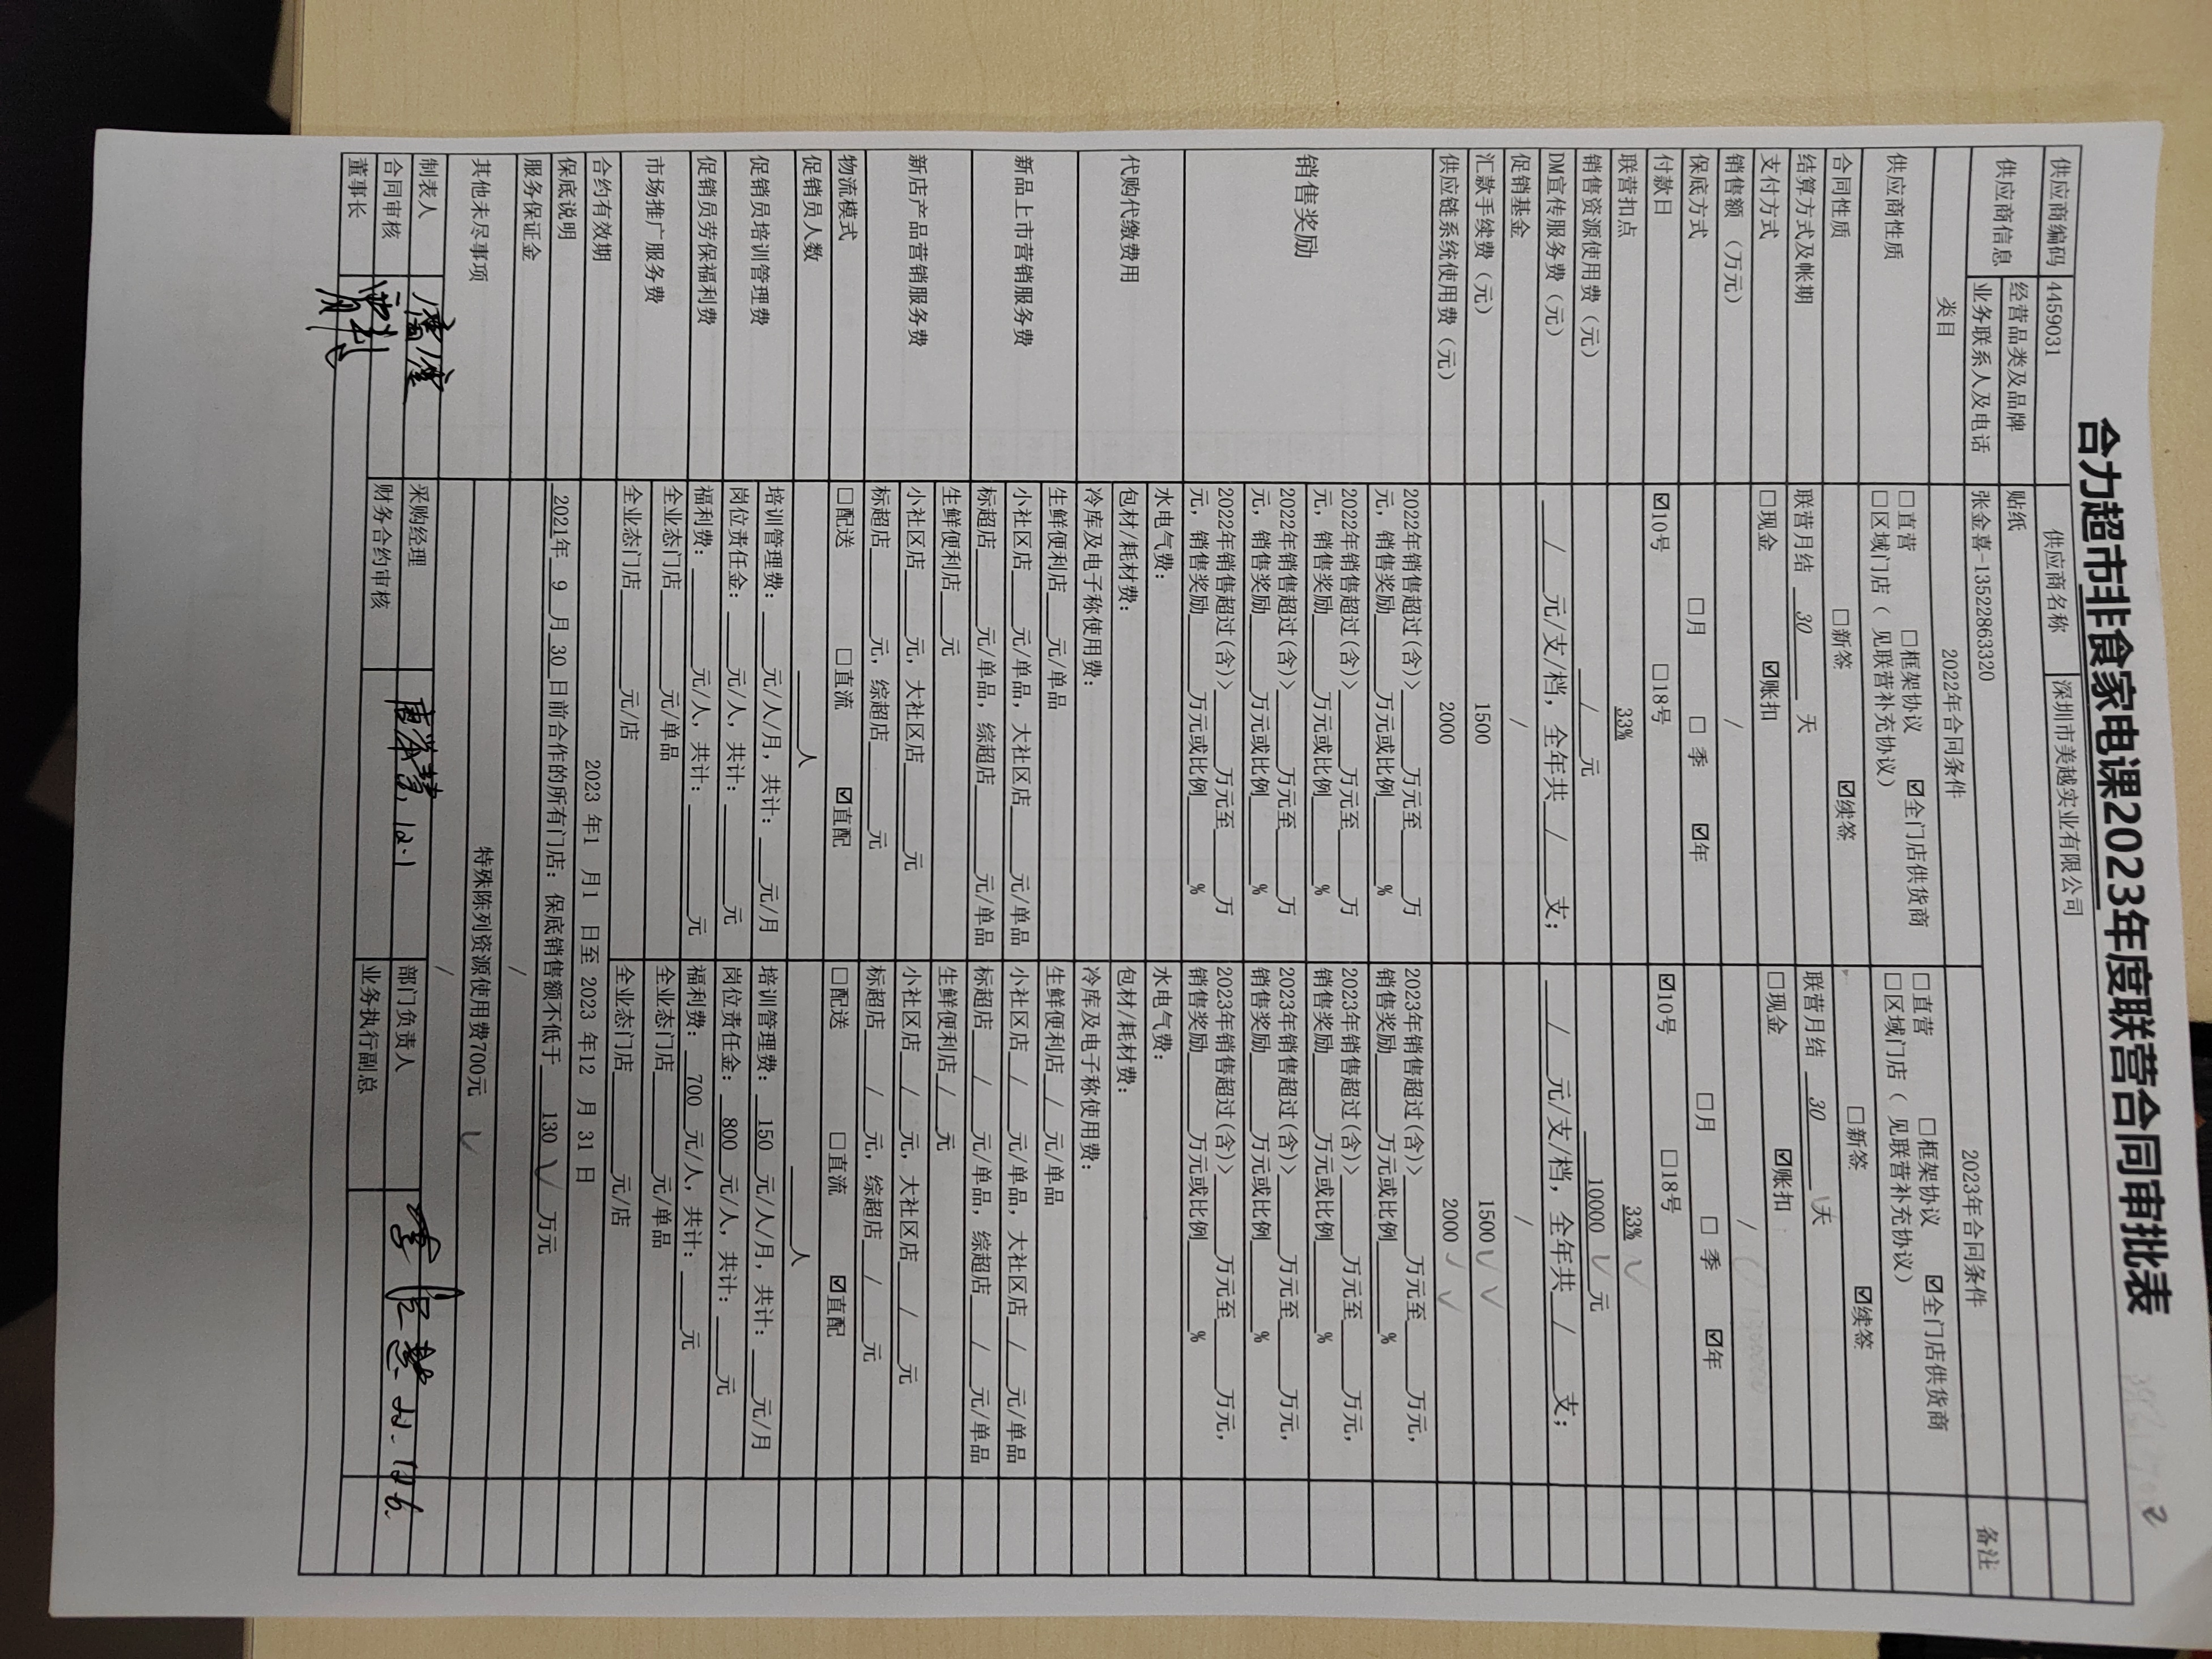 合力超市非食家电课2023年度联营合同审批表
供应商编码 4459031 供应商名称 深圳市美越实业有限公司
供应商信息 经营品类及品牌 贴纸
业务联系人及电话 张金喜-13522863320
类目 2022年合同条件 2023年合同条件 备注
供应商性质 □直营 □框架协议 ☑全门店供货商 □直营 □框架协议 ☑全门店供货商
□区域门店（ 见联营补充协议） □区域门店（ 见联营补充协议）
合同性质 □新签 ☑续签 □新签 ☑续签
结算方式及帐期 联营月结 30 天 联营月结 30 天
支付方式 □现金 ☑账扣 □现金 ☑账扣
销售额（万元） / /
保底方式 □月 □ 季 ☑年 □月 □ 季 ☑年
付款日 ☑10号 □18号 ☑10号 □18号
联营扣点 33% 33%
销售资源使用费（元） / 元 10000 元
DM宣传服务费（元） / 元/支/档，全年共 / 支； / 元/支/档，全年共 / 支；
促销基金 / /
汇款手续费（元） 1500 1500
供应链系统使用费（元） 2000 2000
销售奖励 2022年销售超过(含)>____万元至____万 2023年销售超过(含)>____万元至____万元，
元，销售奖励____万元或比例____% 销售奖励____万元或比例____%
2022年销售超过(含)>____万元至____万 2023年销售超过(含)>____万元至____万元，
元，销售奖励____万元或比例____% 销售奖励____万元或比例____%
2022年销售超过(含)>____万元至____万 2023年销售超过(含)>____万元至____万元，
元，销售奖励____万元或比例____% 销售奖励____万元或比例____%
2022年销售超过(含)>____万元至____万 2023年销售超过(含)>____万元至____万元，
元，销售奖励____万元或比例____% 销售奖励____万元或比例____%
代购代缴费用 水电气费： 水电气费：
包材/耗材费： 包材/耗材费：
冷库及电子称使用费： 冷库及电子称使用费：
新品上市营销服务费 生鲜便利店____元/单品 生鲜便利店 / 元/单品
小社区店____元/单品，大社区店____元/单品 小社区店 / 元/单品，大社区店 / 元/单品
标超店____元/单品，综超店____元/单品 标超店 / 元/单品，综超店 / 元/单品
新店产品营销服务费 生鲜便利店____元 生鲜便利店 / 元
小社区店____元，大社区店____元 小社区店 / 元，大社区店 / 元
标超店____元，综超店____元 标超店 / 元，综超店 / 元
物流模式 □配送 □直流 ☑直配 □配送 □直流 ☑直配
促销员人数 ____人 ____人
促销员培训管理费 培训管理费：____元/人/月，共计：____元/月 培训管理费： 150 元/人/月，共计：____元/月
岗位责任金：____元/人，共计：____元 岗位责任金： 800 元/人，共计：____元
促销员劳保福利费 福利费：____元/人，共计：____元 福利费： 700 元/人，共计：____元
市场推广服务费 全业态门店____元/单品 全业态门店____元/单品
全业态门店____元/店 全业态门店____元/店
合约有效期 2023 年1 月1 日至 2023 年12 月 31 日
保底说明 2021年 9 月 30 日前合作的所有门店：保底销售额不低于 130 万元
服务保证金 /
其他未尽事项 特殊陈列资源使用费700元
/
制表人 采购经理 12.1 部门负责人
合同审核 财务合约审核 业务执行副总
董事长